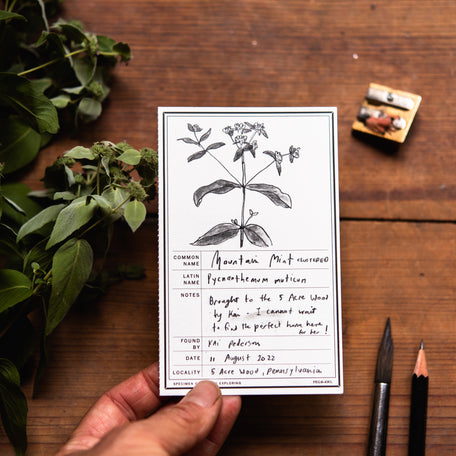 COMMON NAME Mountain Mint CLUSTERED
LATIN NAME Pycnanthemum muticum
NOTES Brought to the 5 Acre Wood
by Kai - I cannot wait
to find the perfect home here
for her !
FOUND BY Kai Pederson
DATE 11 August 2022
LOCALITY 5 Acre Wood, Pennsylvania
SPECIMEN EXPLORING